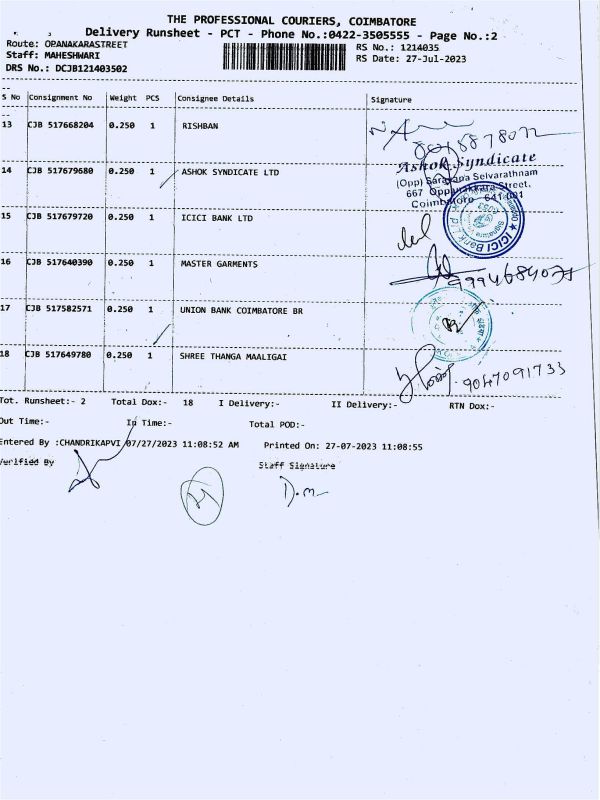 THE PROFESSIONAL COURIERS, COIMBATORE
Delivery Runsheet - PCT - Phone No.:0422-3505555 - Page No.:2
Route: OPANAKARASTREET
RS No.: 1214035
Staff: MAHESHWARI
RS Date: 27-Jul-2023
DRS No.: DCJB121403502
S No Consignment No Weight PCS Consignee Details Signature
13 CJB 517668204 0.250 1 RISHBAN
14 CJB 517679680 0.250 1 ASHOK SYNDICATE LTD
Ashok Syndicate
(Opp) Saravana Selvarathnam
667 Oppanakkara Street,
Coimbatore 641 001
15 CJB 517679720 0.250 1 ICICI BANK LTD
ICICI Bank
16 CJB 517640390 0.250 1 MASTER GARMENTS
9994684071
17 CJB 517582571 0.250 1 UNION BANK COIMBATORE BR
18 CJB 517649780 0.250 1 SHREE THANGA MAALIGAI
9047091733
Tot. Runsheet:- 2 Total Dox:- 18 I Delivery:- II Delivery:- RTN Dox:-
Out Time:- In Time:- Total POD:-
Entered By :CHANDRIKAPVI 07/27/2023 11:08:52 AM Printed On: 27-07-2023 11:08:55
Verified By Staff Signature
D.m